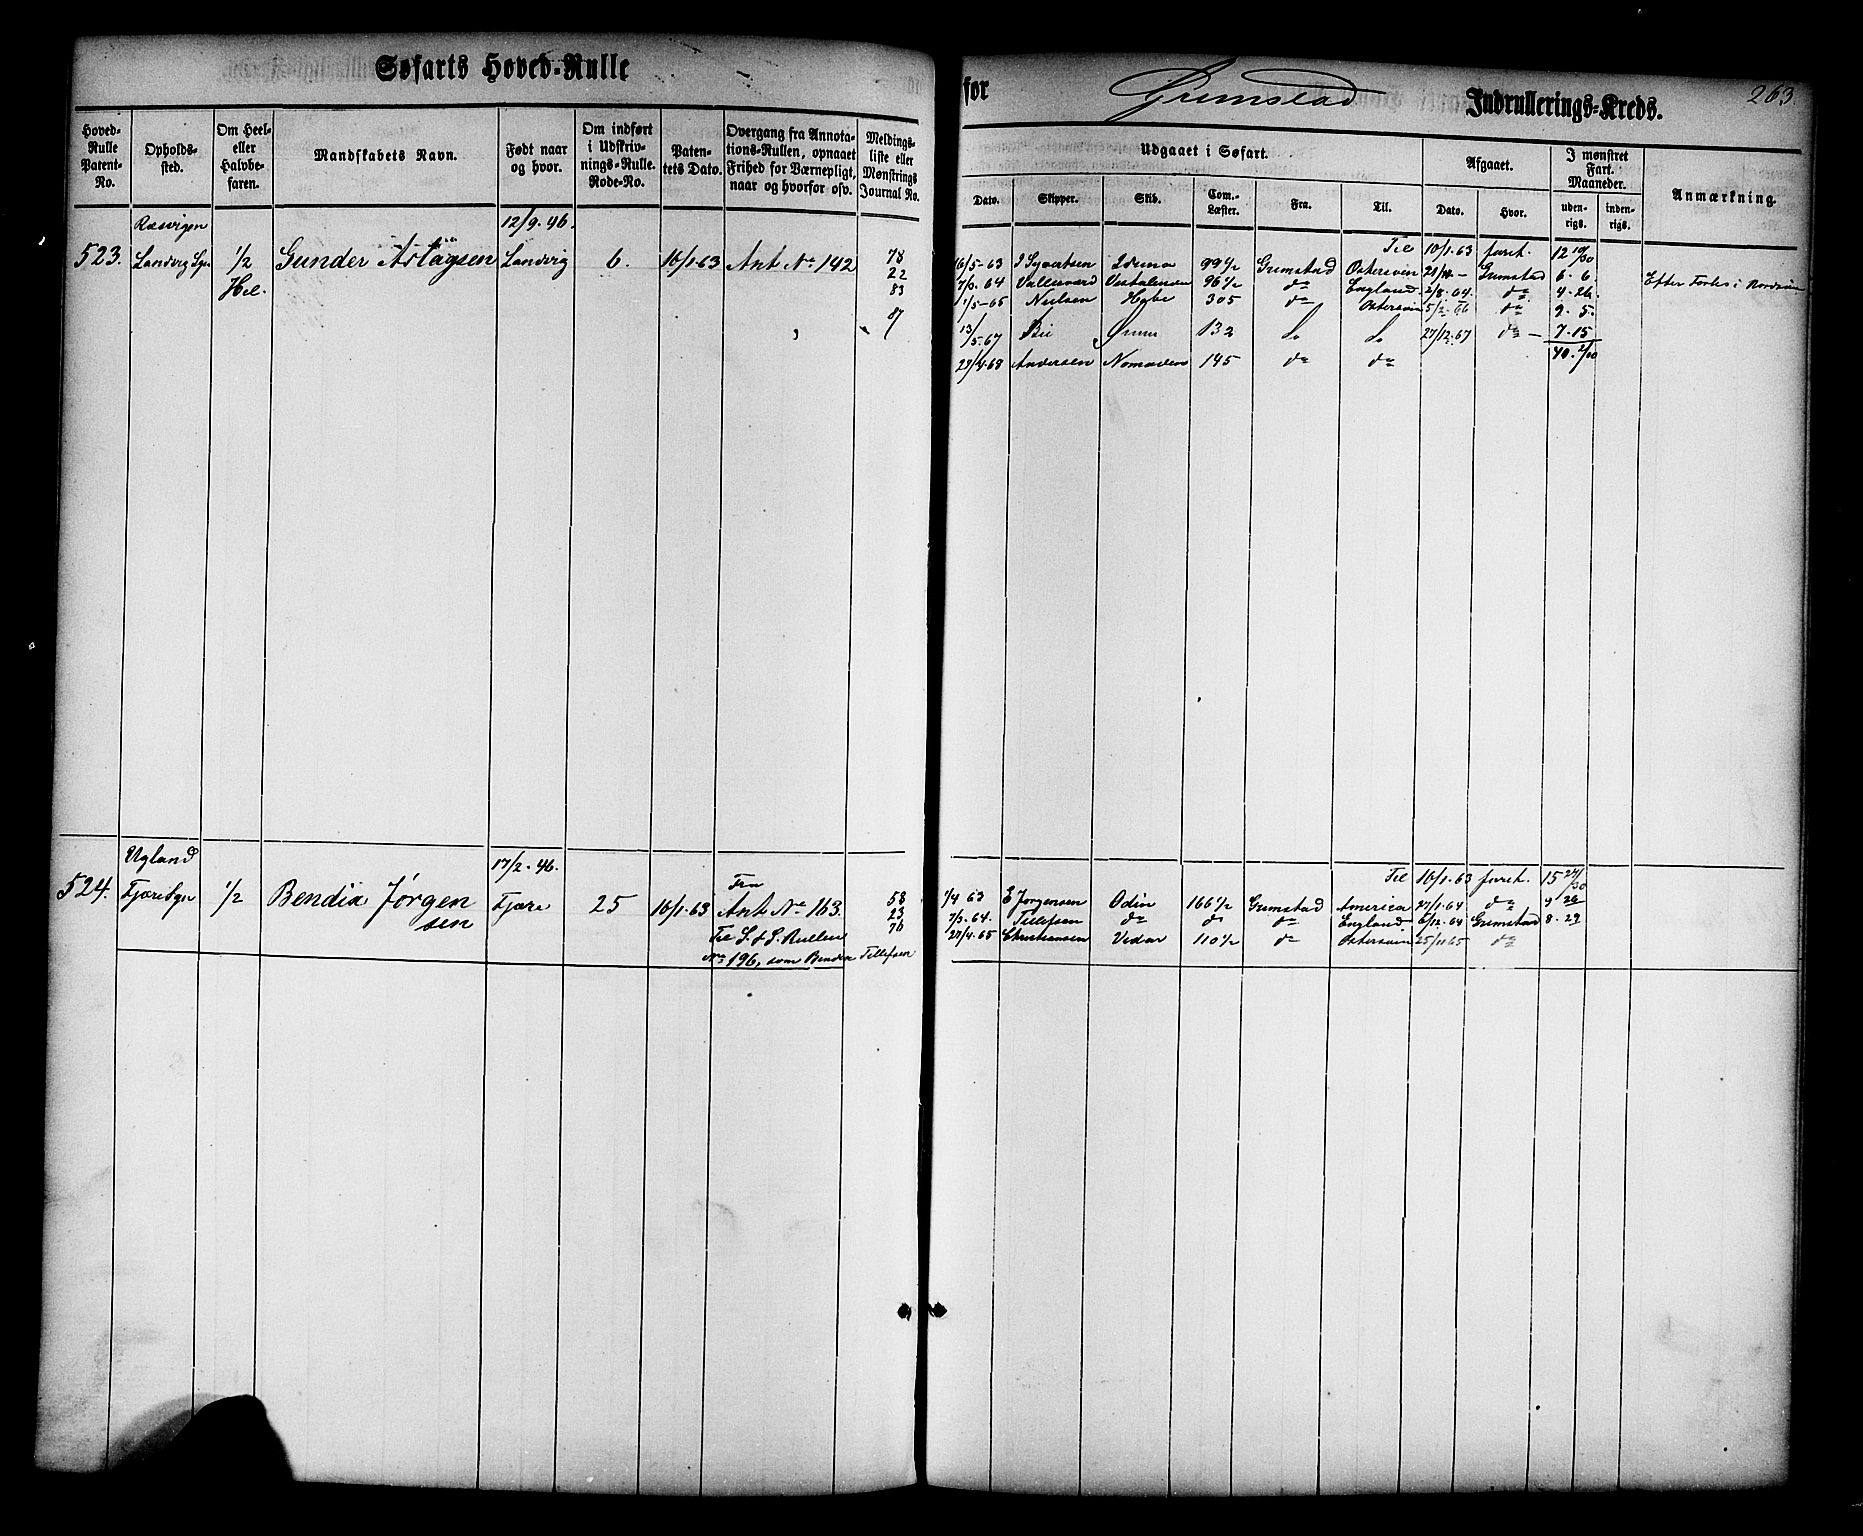 Søfarts Hoved-Rulle
for Grimstad Indrullerings-Kreds.
263
Hoved-Rulle Patent-No.
Opholds-sted.
Om Heel- eller Halvbe-faren.
Mandskabets Navn.
Født naar og hvor.
Om indført i Udskriv-nings-Rulle. Rode-No.
Paten-tets Dato.
Overgang fra Annota-tions-Rullen, opnaaet Frihed for Værnepligt, naar og hvorfor osv.
Meldings-liste eller Mønstrings Journal No.
Udgaaet i Søfart.
Dato.
Skipper.
Skib.
Com.-Læster.
Fra.
Til.
Afgaaet.
Dato.
Hvor.
I mønstret Fart. Maaneder.
uden-rigs.
inden-rigs.
Anmærkning.
12/9.46.
523. Landvig Sgn 1/2 Gunder Aslagsen Landvig 6. 16/1.63 Ant No 142 78
Hel. 22
83
87
Til 10/1.63 faret. 12 10/30
16/5-63 Syvertsen 99 1/2 Grimstad Østersøen Grimstad 6. 6.
7/3.64 96 1/2 do England 2/8.64. do 4.26
1/5-65 Nielsen Hebe 305 do Østersøen 5/2.66 do 9.5.
13/5.67 Bie 132 27/12.67 do 7.15
40. 2/30
23/4.68 Andersen Nomaden 145 do do
Ugland 17/2.46.
524. Fjære Sgn 1/2 Bendix Jørgen Fjære 25 16/1.63 Fra Ant No 163. 58
sen 23
Til S. & S. Rullen 70
No 196, som Bendix Tellefsen
Til 16/1.63 faret. 15 27/30
1/4 63 E Jørgensen Odin 166 1/2 Grimstad America 27/1.64 do 9 26
7/3.64. Tellefsen do do do England 6/12.64 Grimstad 8.29
27/4.65 Christiansen Vidar 110 1/2 do Østersøen 25/11 65 do